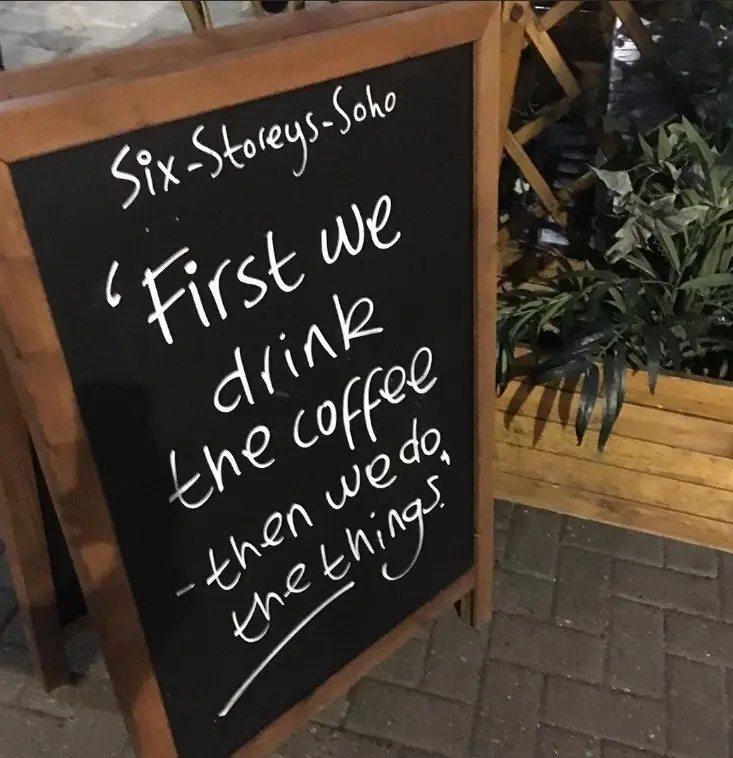 Six-Storeys-Soho
'First we
drink
the coffee
-then we do,
the things.'